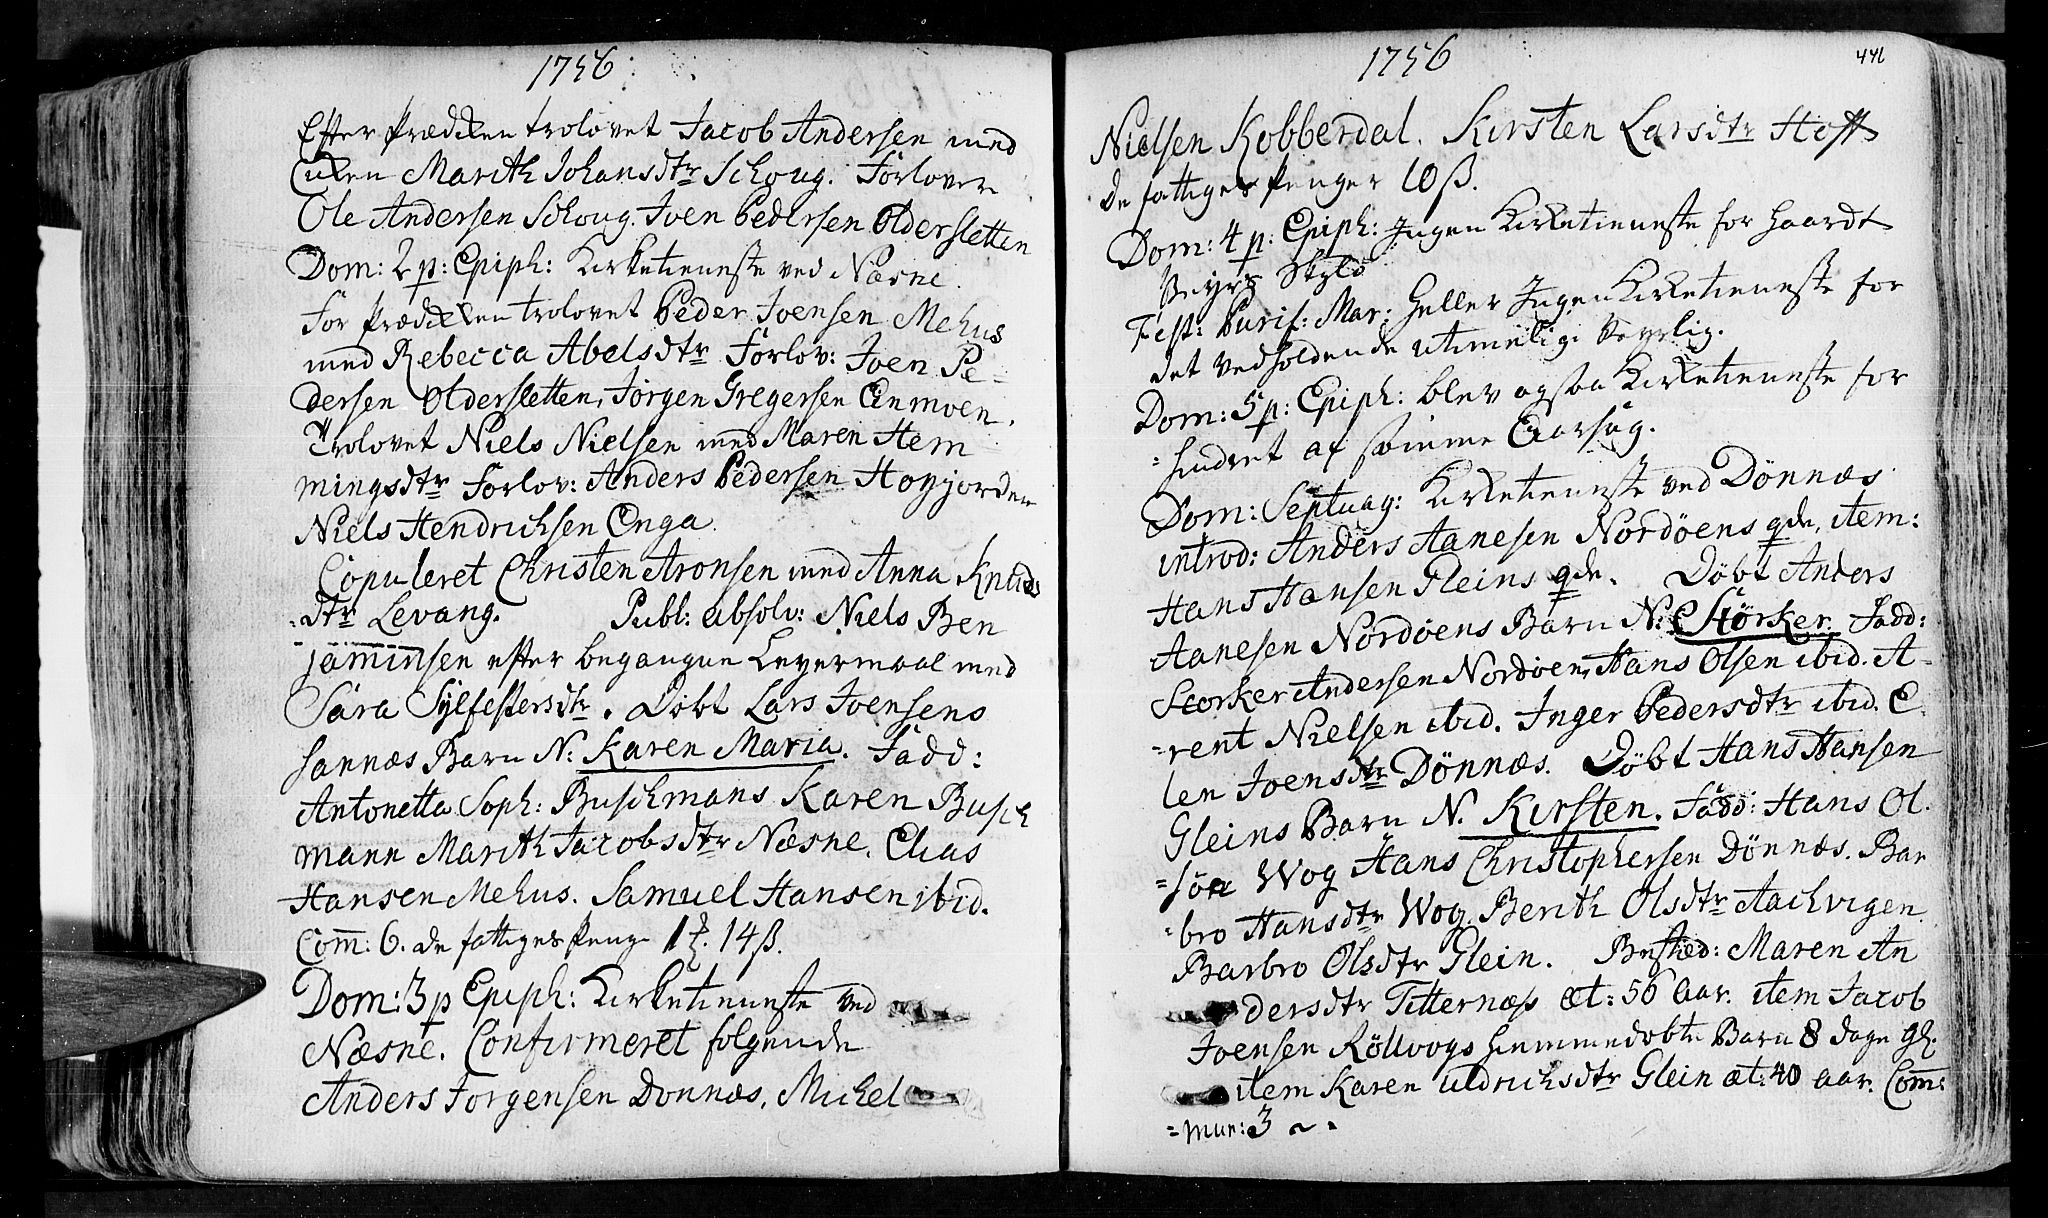 1756
Efter Prædiken trolovet Jacob Andersen med
Enken Marith Johansdtr Schoug. Forlover
Ole Andersen Schoug. Joen Pedersen Oldersletten
Dom: 2 p: Epiph: Kirketieneste ved Næsne.
For Prædiken trolovet Peder Joensen Mehus
med Rebecca Abelsdtr Forlov: Joen Pe-
dersen Oldersletten, Jørgen Gregersen Einmoen.
Trolovet Niels Nielsen med Maren Hem
mingsdtr Forlov: Anders Pedersen Høyjorden
Niels Hendrichsen Enga.
Copuleret Christen Aronsen med Anna Knuds
-dtr Levang. Publ: absolv: Niels Ben
jaminsen efter begangne Leyermaal med
Sara Sylfestersdtr. Døbt Lars Joensens
Sannæs Barn N: Karen Maria. Fadd:
Antonetta Soph: Buschmans Karen Busch
mann Marith Jacobsdtr Næsne. Elias
Hansen Mehus. Samuel Hansen ibid.
Com: 6. de fattiges Peng 1 14 ß.
Dom: 3 p Epiph: Kirketieneste ved
Næsne. Confirmeret følgende
Anders Jørgensen Dønnæs, Michel
1756
441
Nielsen Kobberdal. Kirsten Larsdtr Hoff
De fattiges Penger 10 ß.
Dom: 4 p: Epiph: Ingen Kirketieneste for haardt
Veyrs Skyld
Fest: Purif: Mar: Heller Ingen Kirketieneste for
det vedholdende utimelige Veyrlig.
Dom: 5 p: Epiph: blev ogsaa Kirketieneste for
=hindret af samme Aarsag.
Dom: Septuag: Kirketieneste ved Dønnæs
introd: Anders Aanesen Nordøens qde, item:
Hans Hansen Gleins qde. Døbt Anders
Aanesen Nordøens Barn N: Størker. Fadd:
Storker Andersen Nordøen, Hans Olsen ibid. A-
-rent Nielsen ibid. Inger Pedersdtr ibid. E-
len Joensdtr Dønnæs. Døbt Hans Hansen
Gleins Barn N. Kirsten. Fadd: Hans Ol-
=søn Wog Hans Christophersen Dønnæs. Bar
-bro Hansdtr Wog. Berith Olsdtr Aachvigen
Barbro Olsdtr Glein. Bested: Maren An
dersdtr Titternæss æt: 56 Aar. item Jacob
Joensen Röllvogs hiemmedøbte Barn 8 dage gl.
item Karen Uldrichsdtr Glein æt: 40 aar. Com:
=mun: 3